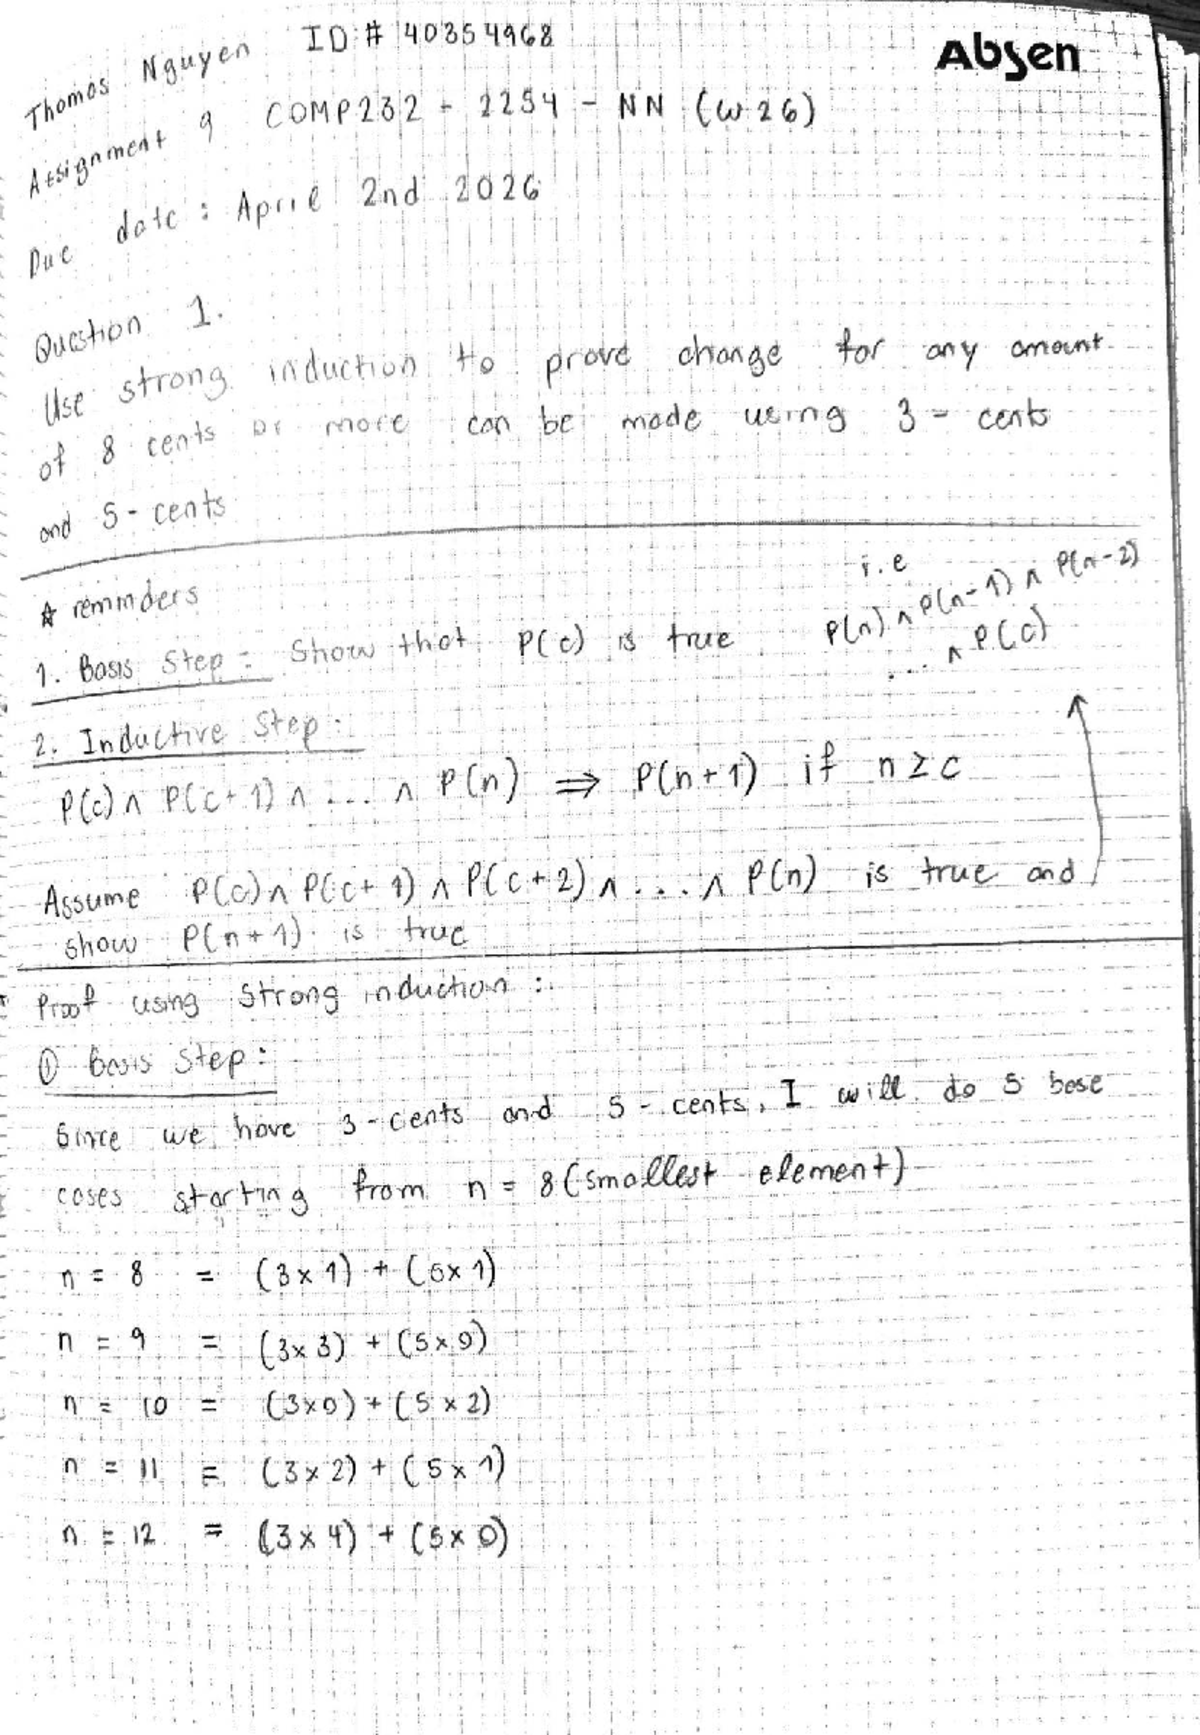 Thomas Nguyen ID # 40354968
Absen
Assignment 9 COMP232 - 2254 - NN (W26)
Due date : April 2nd 2026
Question 1.
Use strong induction to prove change for any amount
of 8 cents or more can be made using 3 - cents
and 5 - cents
☆ reminders
i.e
P(n) ∧ P(n-1) ∧ P(n-2)
... ∧ P(c)
1. Basis Step : Show that P(c) is true
2. Inductive Step :
P(c) ∧ P(c+1) ∧ ... ∧ P(n) ⇒ P(n+1) if n ≥ c
Assume P(c) ∧ P(c+1) ∧ P(c+2) ∧ ... ∧ P(n) is true and
show P(n+1) is true
Proof using Strong induction :
① Basis Step :
Since we have 3-cents and 5 - cents, I will do 5 base
cases starting from n = 8 (smallest element)
n = 8 = (3 x 1) + (5 x 1)
n = 9 = (3 x 3) + (5 x 0)
n = 10 = (3 x 0) + (5 x 2)
n = 11 = (3 x 2) + (5 x 1)
n = 12 = (3 x 4) + (5 x 0)